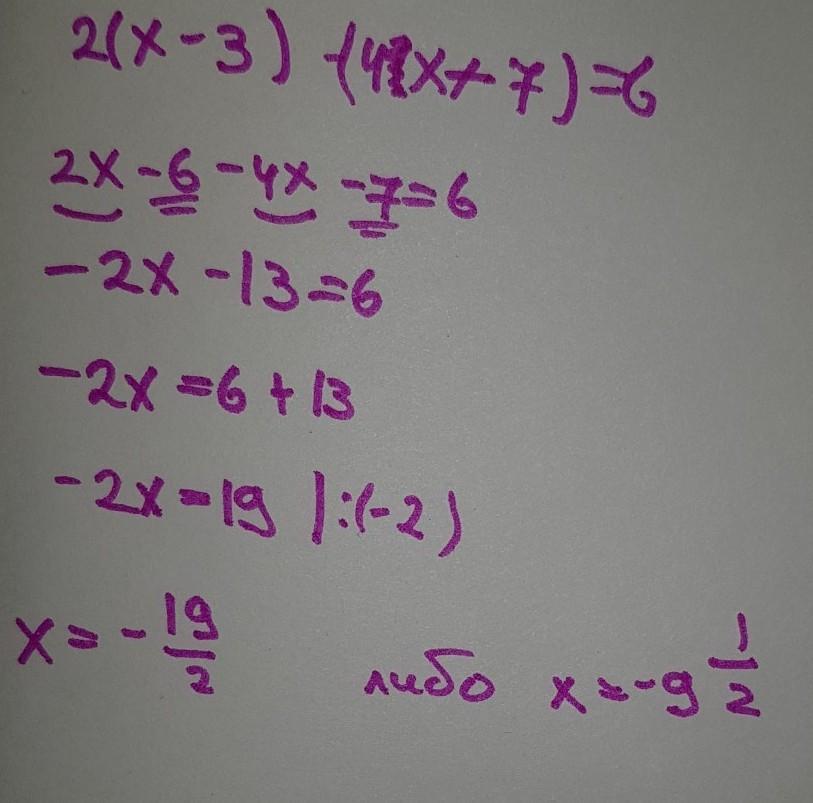 2(x-3) -(4x+7)=6
2x-6-4x-7=6
-2x-13=6
-2x=6+13
-2x=19 |:(-2)
x=-19/2 либо x=-9 1/2